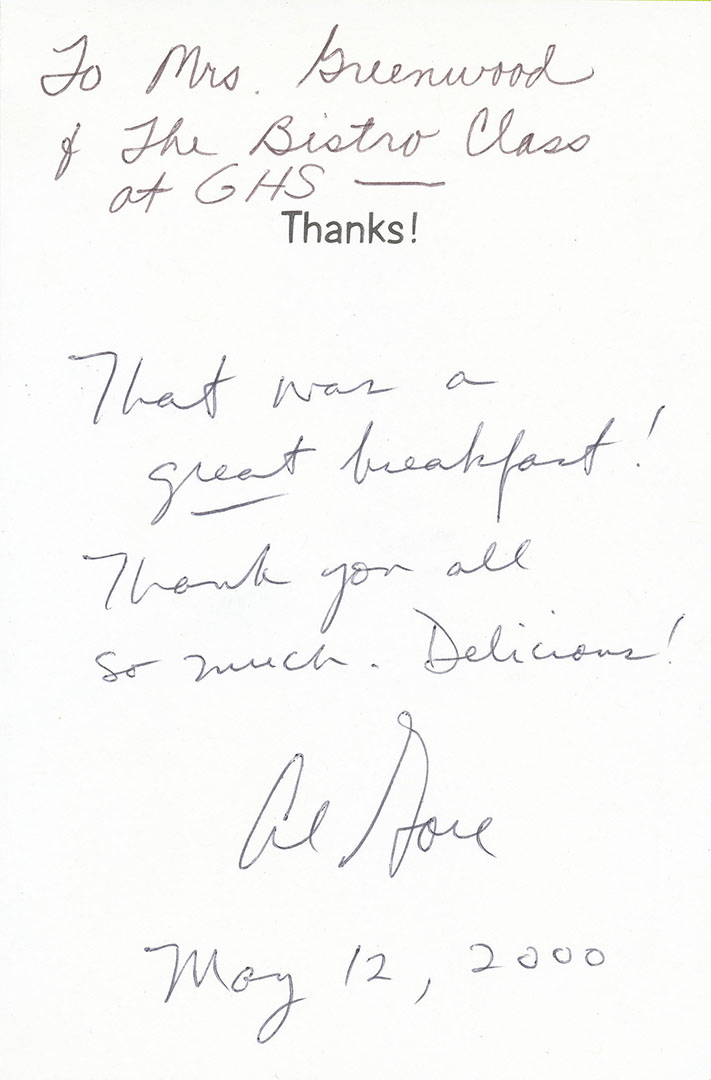 To Mrs. Greenwood
& The Bistro Class
at GHS —
Thanks!
That was a
great breakfast!
Thank you all
so much. Delicious!
Al Gore
May 12, 2000